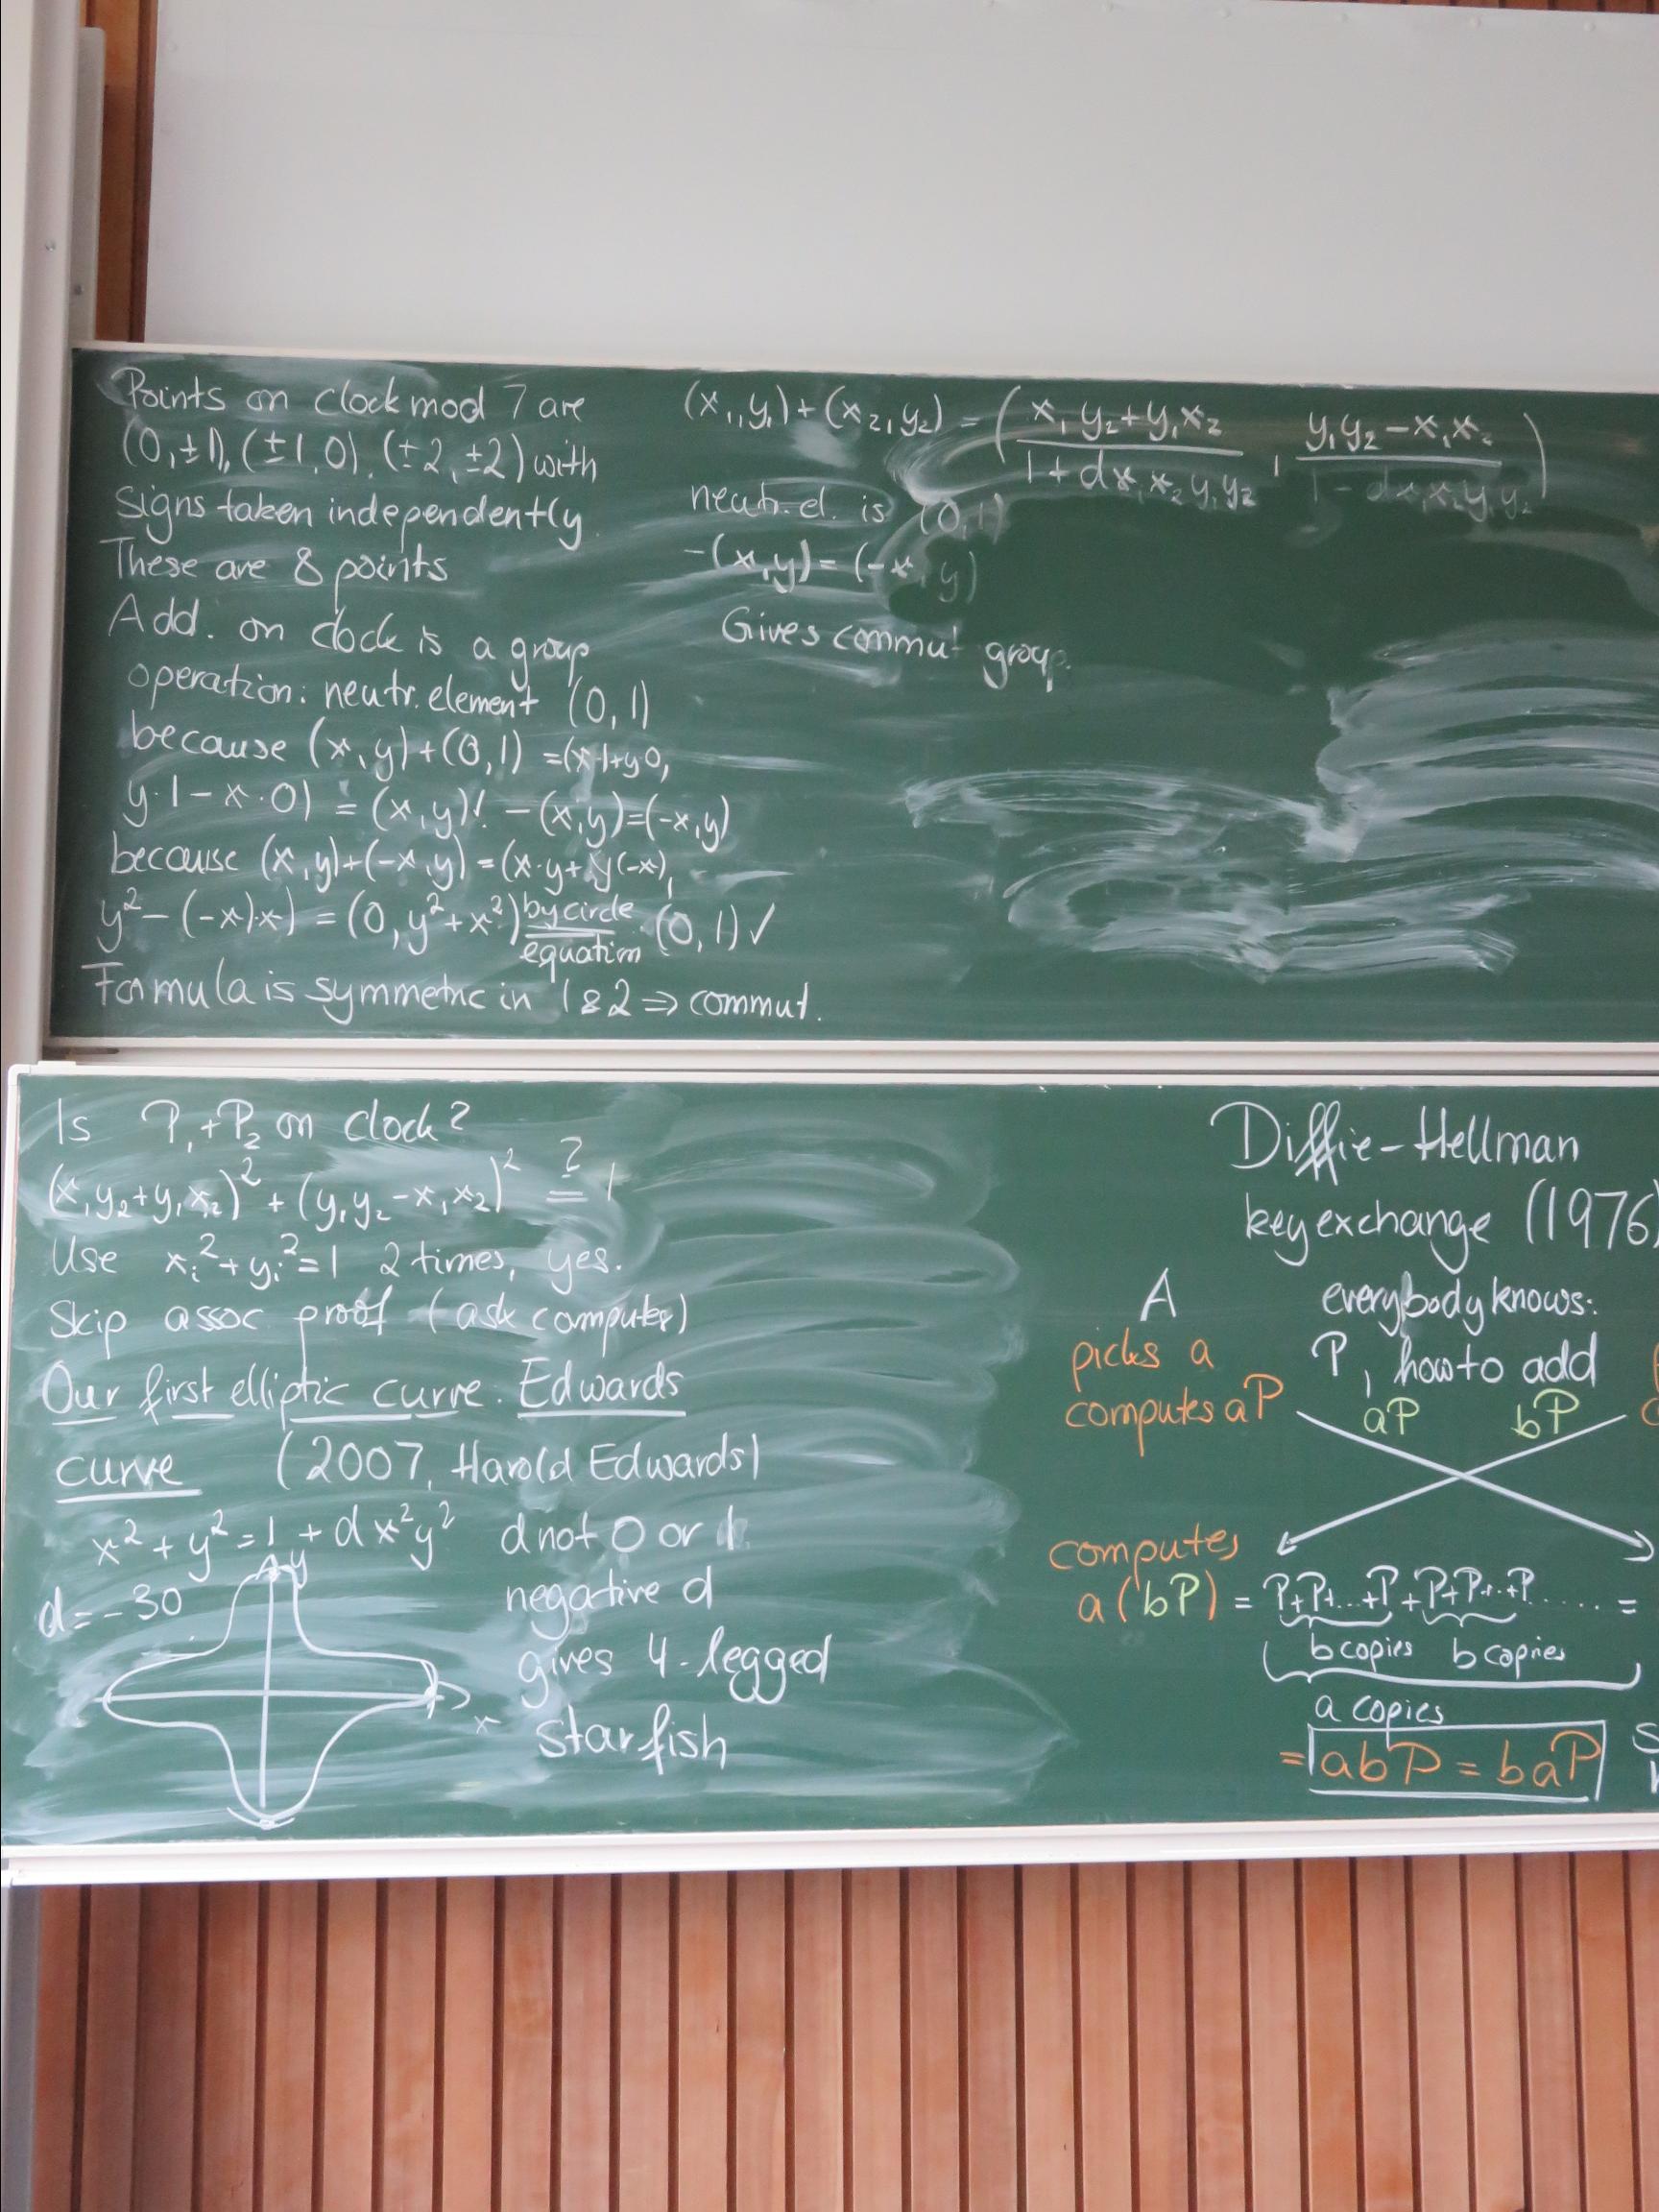 Points on clock mod 7 are
(0,±1), (±1,0), (±2,±2) with
signs taken independently
These are 8 points
Add. on clock is a group
operation: neutr. element (0,1)
because (x,y)+(0,1) =(x·1+y·0,
y·1-x·0) = (x,y)! -(x,y)=(-x,y)
because (x,y)+(-x,y) = (x·y+y(-x),
y²-(-x)·x) = (0,y²+x²) by circle equation (0,1) ✓
Formula is symmetric in 1&2 ⇒ commut.
(x₁,y₁)+(x₂,y₂) = ( (x₁y₂+y₁x₂)/(1+dx₁x₂y₁y₂) , (y₁y₂-x₁x₂)/(1-dx₁x₂y₁y₂) )
neutr. el. is (0,1)
-(x,y) = (-x,y)
Gives commut group.
Is P₁+P₂ on clock?
(x₁y₂+y₁x₂)² + (y₁y₂-x₁x₂)² ≟ 1
Use xᵢ²+yᵢ²=1 2 times, yes.
Skip assoc proof (ask computer)
Our first elliptic curve. Edwards
curve (2007, Harold Edwards)
x²+y²=1+dx²y² d not 0 or 1
d=-30 y negative d
gives 4-legged
x starfish
Diffie-Hellman
key exchange (1976)
A everybody knows:
picks a P, how to add
computes aP aP bP
computes
a(bP) = P+P+...+P+P+P+..+P...... =
b copies b copies
a copies
= abP = baP